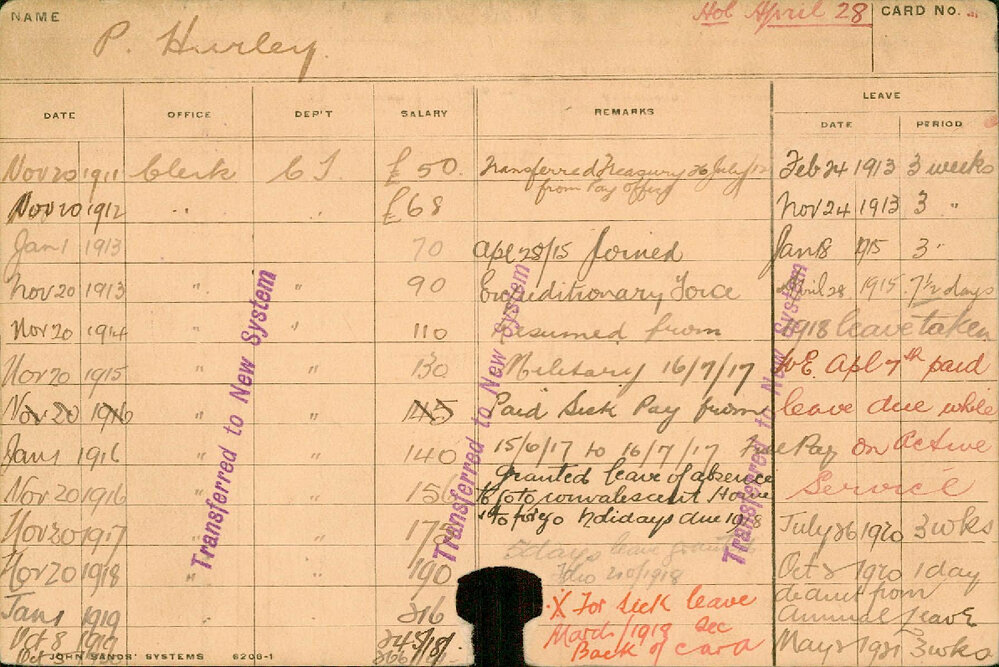 NAME P. Hurley. Hol April 28 CARD NO.
LEAVE
DATE OFFICE DEP'T SALARY REMARKS DATE PERIOD
Nov 20 1911 Clerk C T £50. Transferred Treasury 26 July/12 Feb 24 1913 3 weeks
from Pay Office
Nov 20 1912 " " £68 Nov 24 1913 3 "
Jan 1 1913 70 Apl 28/15 Joined Jan 18 1915 3 "
Nov 20 1913 " " 90 Expeditionary Force April 28 1915 7½ days
Nov 20 1914 " " 110 Resumed from 1918 leave taken
Nov 20 1915 " " 130 Military 16/7/17 W.E. Apl 7th paid
Nov 20 1916 " " 145 Paid Sick Pay from leave due while
Jan 1 1916 " " 140 15/6/17 to 16/7/17 Full Pay on Active
granted leave of absence
Nov 20 1916 " " 156 to go to convalescent Home Service
to forgo holidays due 1918
Nov 20 1917 " " 178 July 26 1920 3 wks
5 days leave granted
Nov 20 1918 " " 190 1918 Oct 2 1920 1 day
deduct from
Jan 1 1919 216 X For Sick leave Annual Leave
Oct 8 1919 245/18/- March/1919 See May 2 1921 3 wks
Oct 266 Back of card
JOHN SANDS' SYSTEMS 6206-1
Transferred to New System
Transferred to New System
Transferred to New System